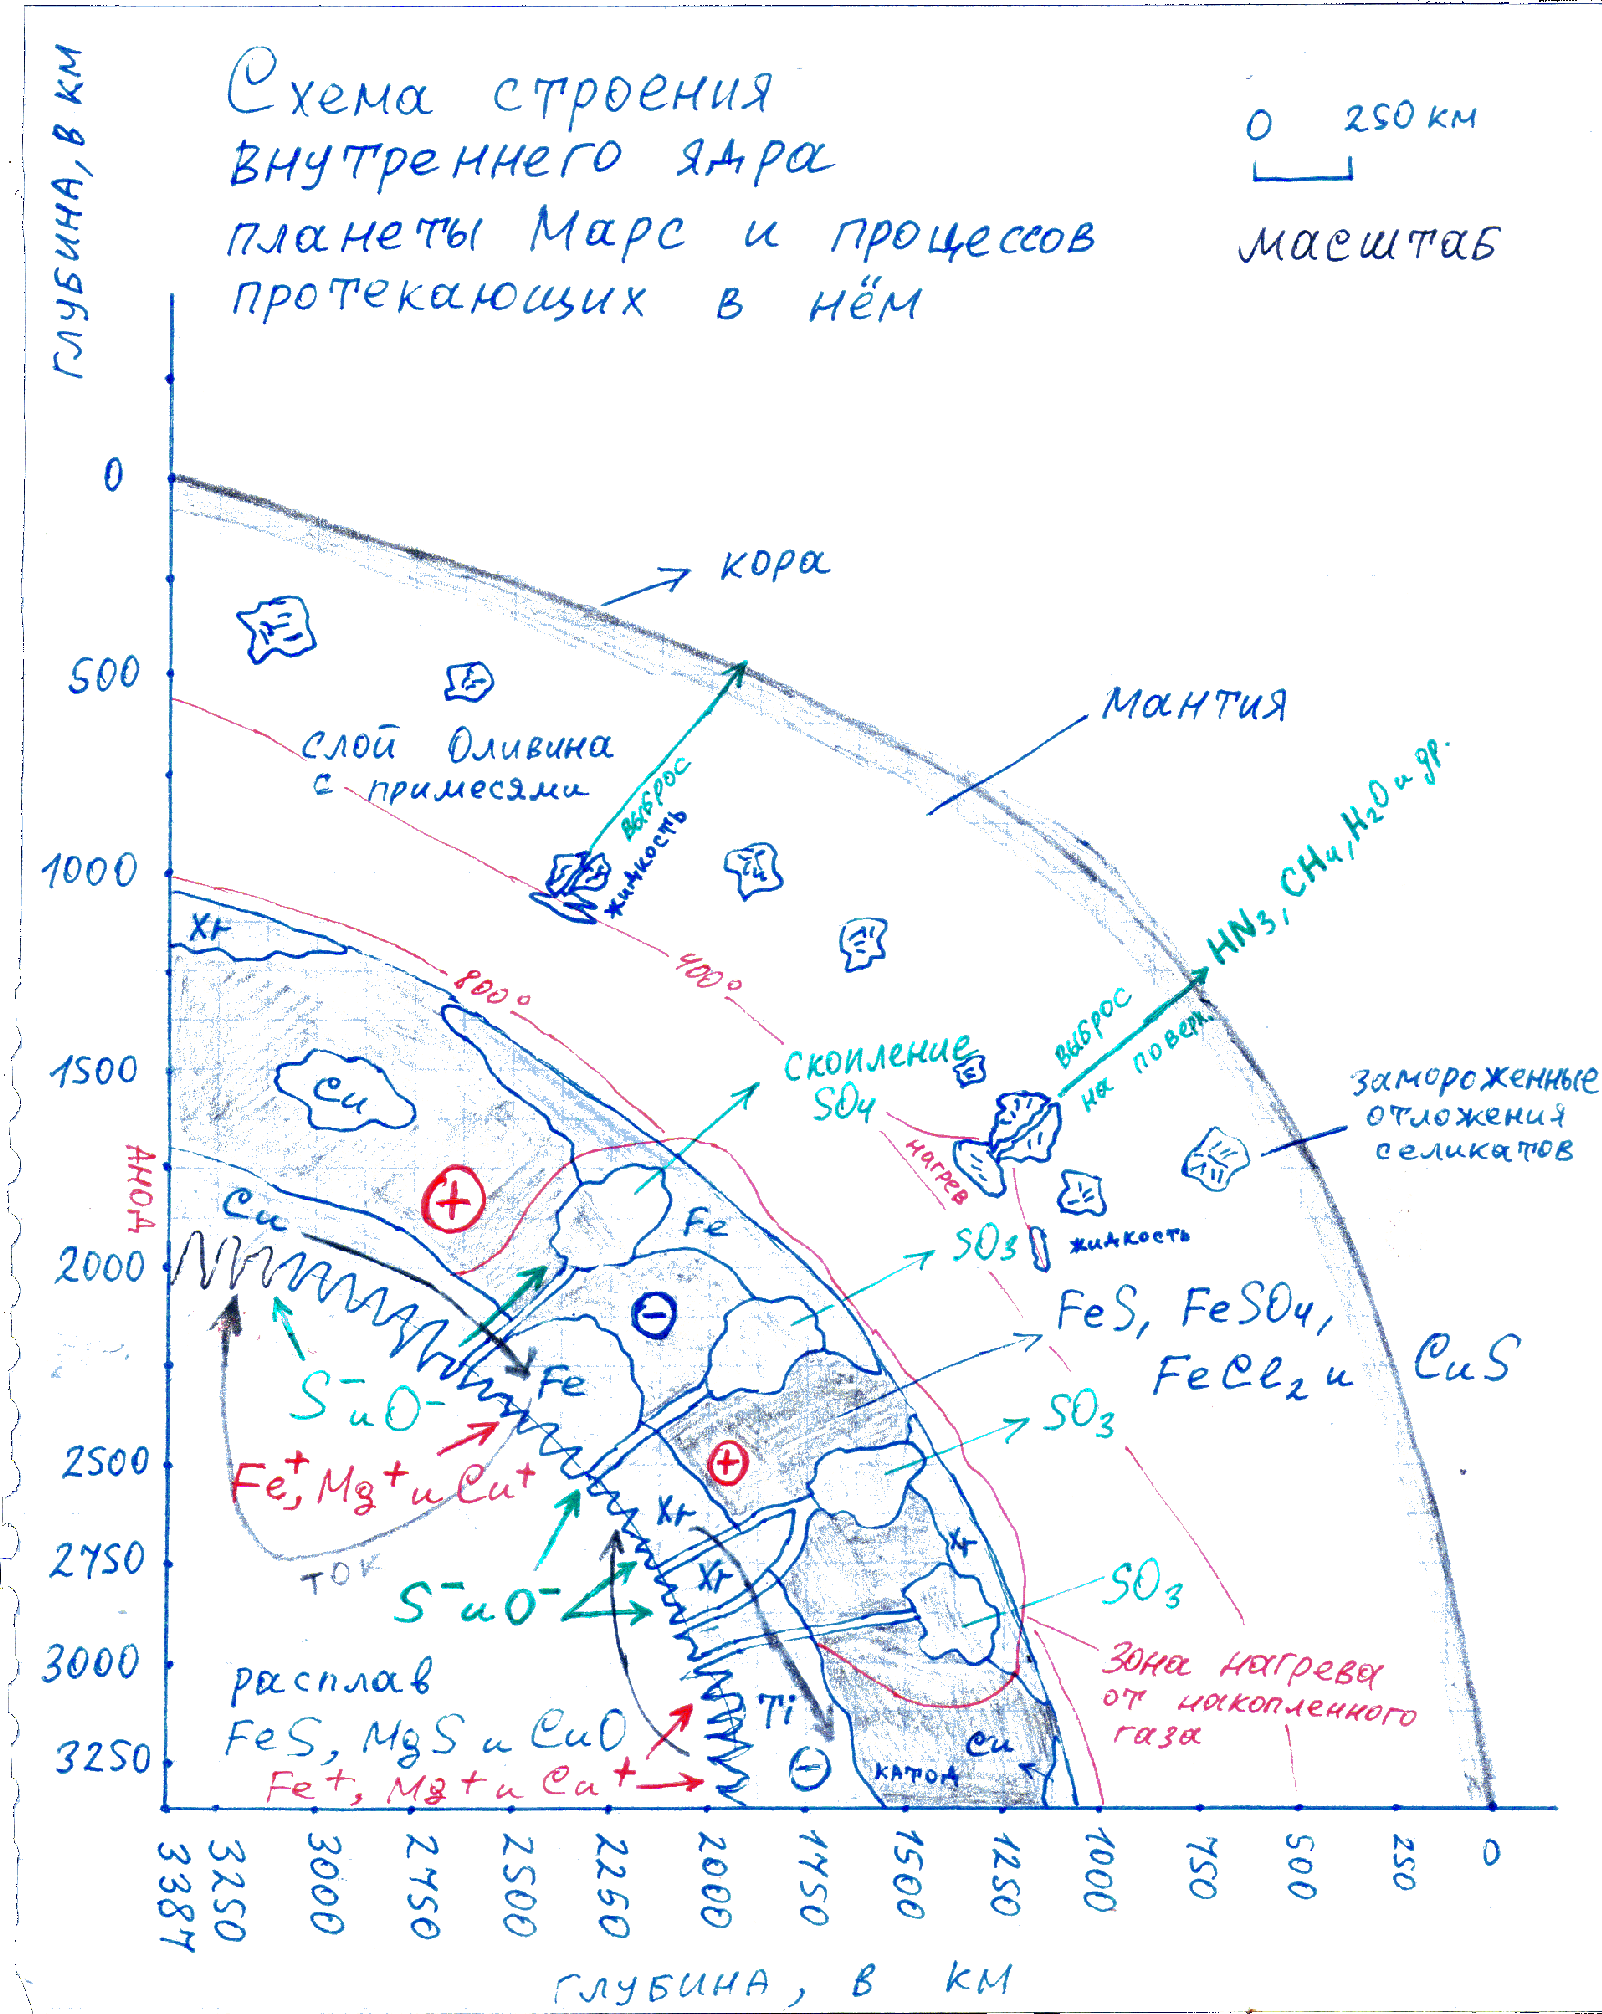 Схема строения
внутреннего ядра
планеты Марс и процессов
протекающих в нём
0 250 км
масштаб
глубина, в км
0
500
1000
1500
2000
2500
2750
3000
3250
кора
Мантия
слой Оливина
с примесями
выброс
жидкость
HN₃, CH₄, H₂O и др.
выброс
на поверх.
400°
800°
Xr
Cu
скопление
SO₄
нагрев
замороженные
отложения
селикатов
жидкость
анод
+
Cu
Fe
SO₃
FeS, FeSO₄,
FeCl₂ и CuS
−
Fe
S⁻ и O⁻
SO₃
Fe⁺, Mg⁺ и Cu⁺
+
Xr
Xr
Xr
ток
S⁻ и O⁻
SO₃
зона нагрева
от накопленного
газа
расплав
FeS, MgS и CuO
Fe⁺, Mg⁺ и Cu⁺
Ti
−
катод
Cu
3387
3250
3000
2750
2500
2250
2000
1750
1500
1250
1000
750
500
250
0
глубина, в км